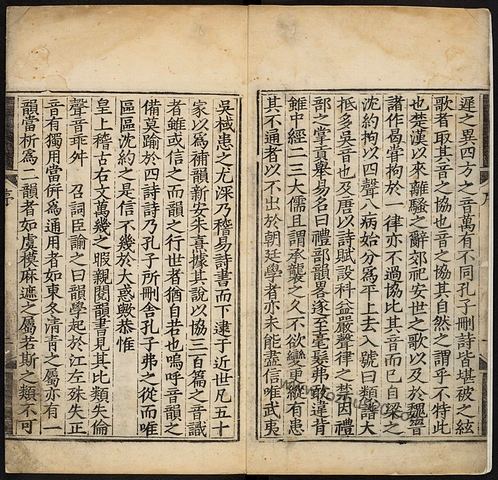 遲之異四方之音萬有不同孔子刪詩皆堪被之絃
歌者取其音之協也音之協其自然之謂乎不特此
也楚漢以來離騷之辭郊祀安世之歌以及於魏晉
諸作曷嘗拘於一律亦不過協比其音而已自梁之
沈約拘以四聲八病始分爲平上去入號曰類譜大
抵多吳音也及唐以詩賦設科益嚴聲律之禁因禮
部之掌貢舉易名曰禮部韻畧遂至毫髮弗敢違背
雖中經二三大儒且謂承襲之久不欲變更縱有患
其不通者以不出於朝廷學者亦未能盡信唯武夷
吳棫患之尤深乃稽易詩書而下逮于近世凡五十
家以爲補韻新安朱熹據其說以協三百篇之音識
者雖或信之而韻之行世者猶自若也嗚呼音韻之
備莫踰於四詩詩乃孔子所刪舍孔子弗之從而唯
區區沈約之是信不幾於大惑歟恭惟
皇上稽古右文萬幾之暇親閱韻書見其比類失倫
聲音乖舛 召詞臣諭之曰韻學起於江左殊失正
音有獨用當併爲通用者如東冬清青之屬亦有一
韻當析爲二韻者如虞模麻遮之屬若斯之類不可
序